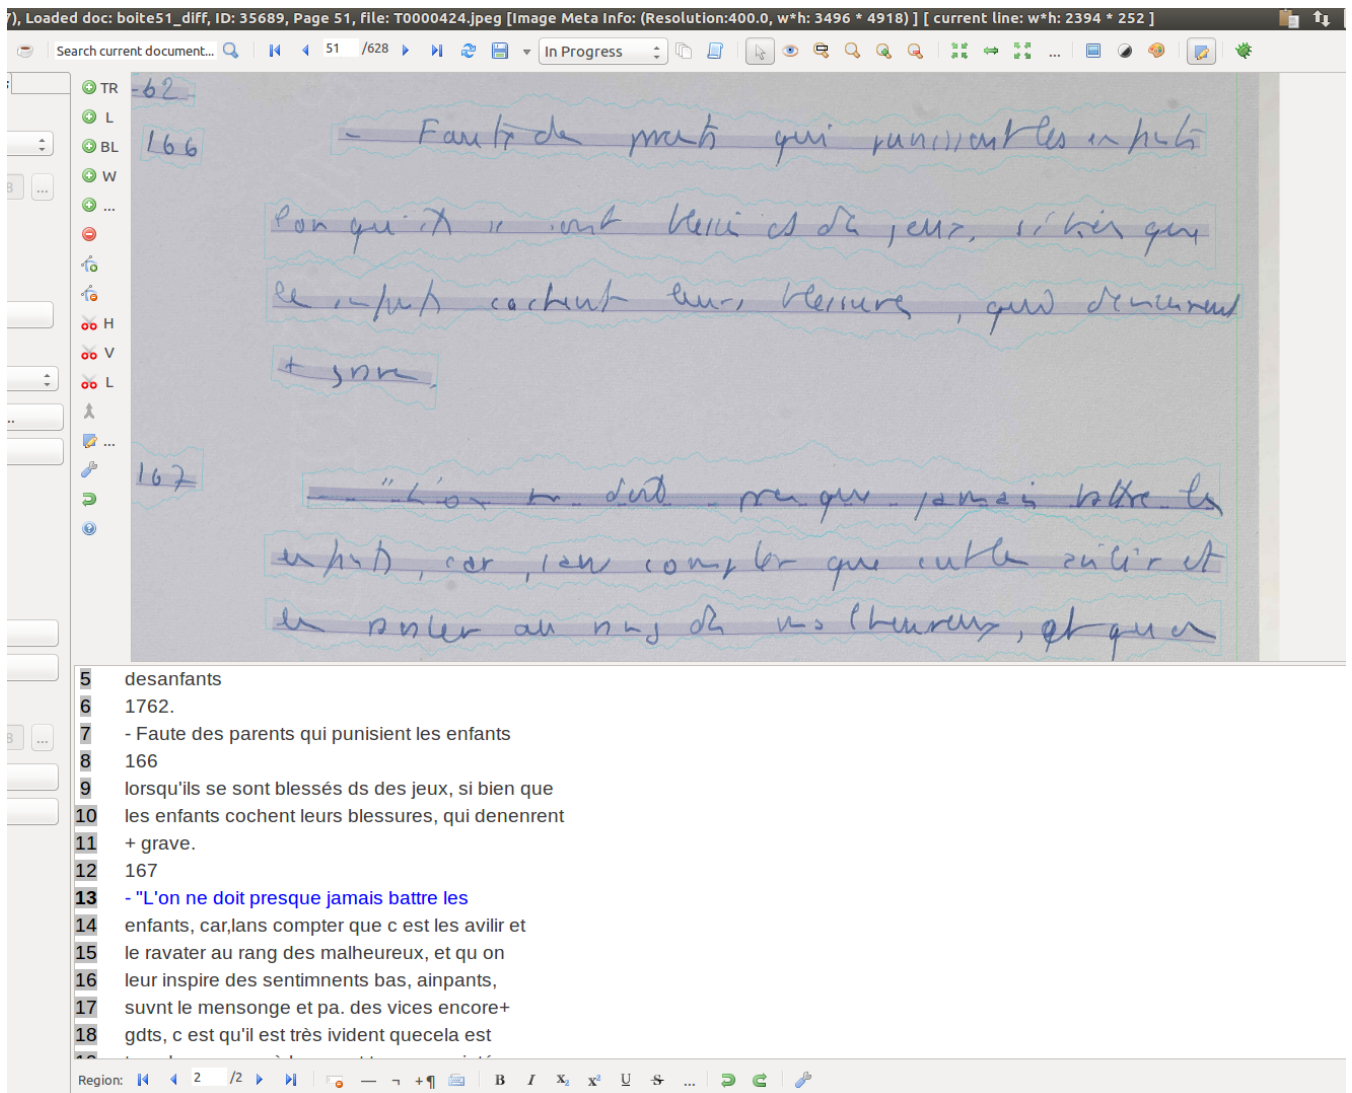 7), Loaded doc: boite51_diff, ID: 35689, Page 51, file: T0000424.jpeg [Image Meta Info: (Resolution:400.0, w*h: 3496 * 4918) ] [ current line: w*h: 2394 * 252 ]
Search current document... 51 /628 In Progress ...
TR
L
BL
W
...
H
V
L
...
-62
166 - Faute de parents qui punissent les enfants
lorsqu'ils se sont blessés ds des jeux, si bien que
les enfants cachent leurs blessures, qui demeurent
+ grave.
167 - "L'on ne doit presque jamais battre les
enfants, car, sans compter que c'est les avilir et
les ravaler au rang des malheureux, et qu'on
5 desanfants
6 1762.
7 - Faute des parents qui punisient les enfants
8 166
9 lorsqu'ils se sont blessés ds des jeux, si bien que
10 les enfants cochent leurs blessures, qui denenrent
11 + grave.
12 167
13 - "L'on ne doit presque jamais battre les
14 enfants, car,lans compter que c est les avilir et
15 le ravater au rang des malheureux, et qu on
16 leur inspire des sentimnents bas, ainpants,
17 suvnt le mensonge et pa. des vices encore+
18 gdts, c est qu'il est très ivident quecela est
Region: 2 /2 — ¬ +¶ B I X₂ x² U S ...